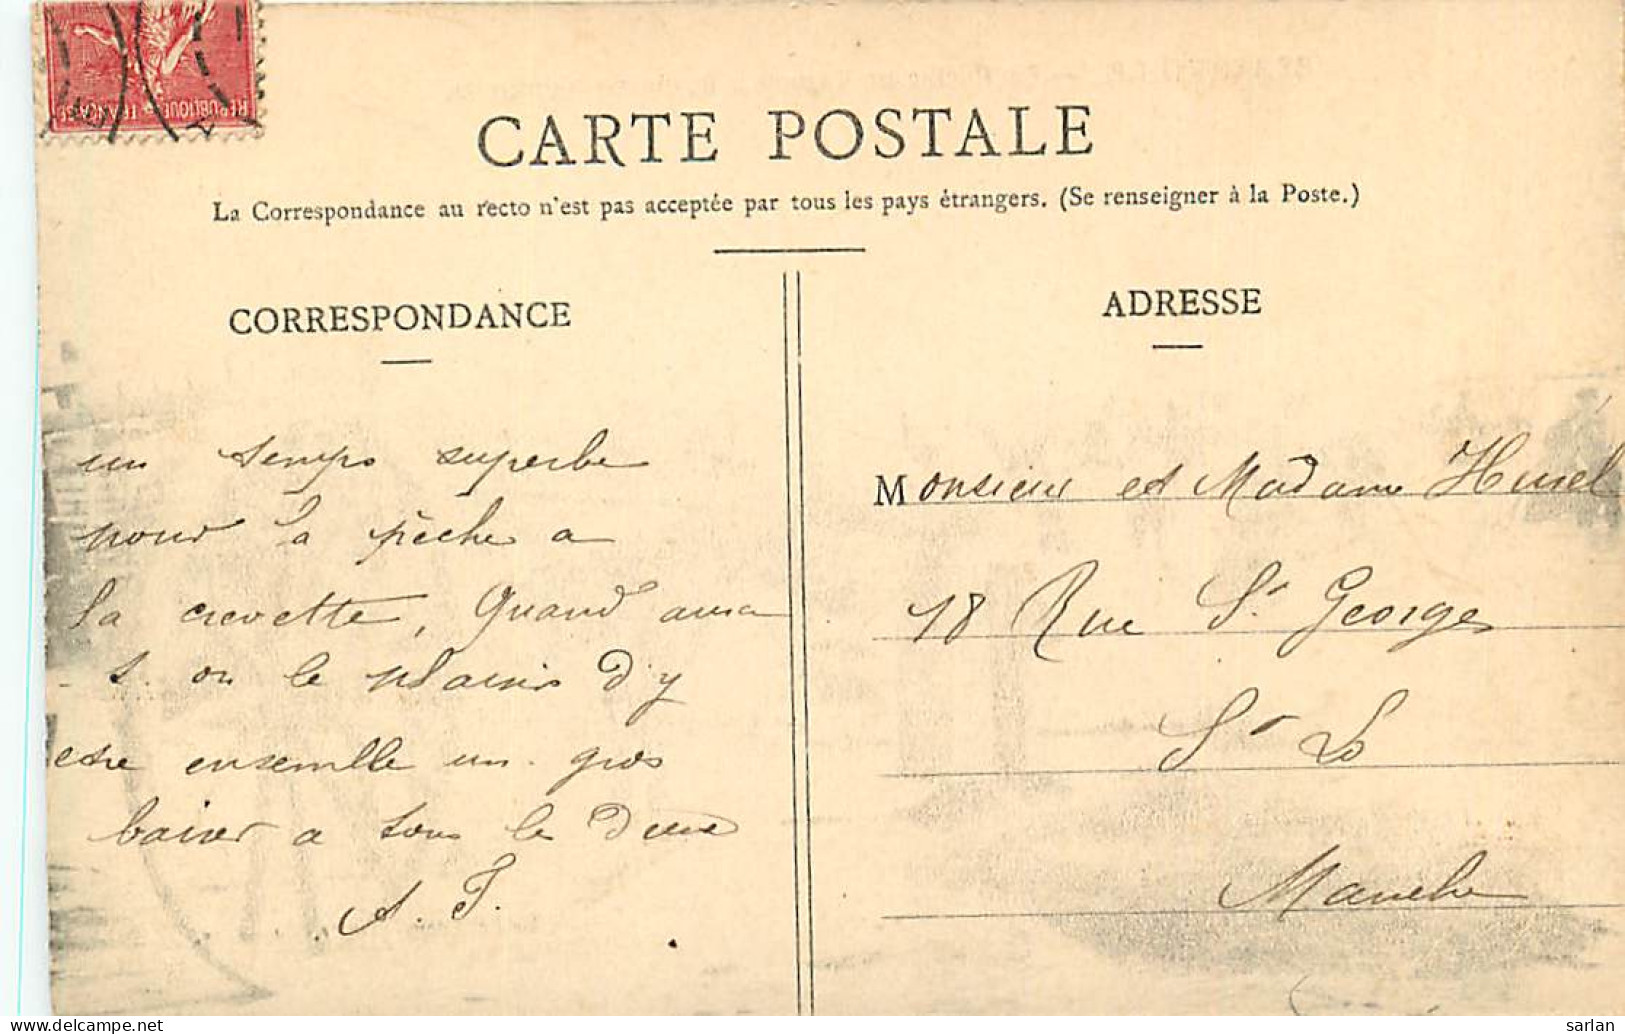 RÉPUBLIQUE FRANÇAISE
CARTE POSTALE
La Correspondance au recto n'est pas acceptée par tous les pays étrangers. (Se renseigner à la Poste.)
CORRESPONDANCE
un temps superbe
pour la pêche a
la crevette, Quand aura
-t-on le plaisir d'y
etre ensemble un gros
baiser a tous les deux
A. J.
ADRESSE
Monsieur et Madame Hurel
18 Rue St Georges
St Lo
Manche
sarlan
www.delcampe.net